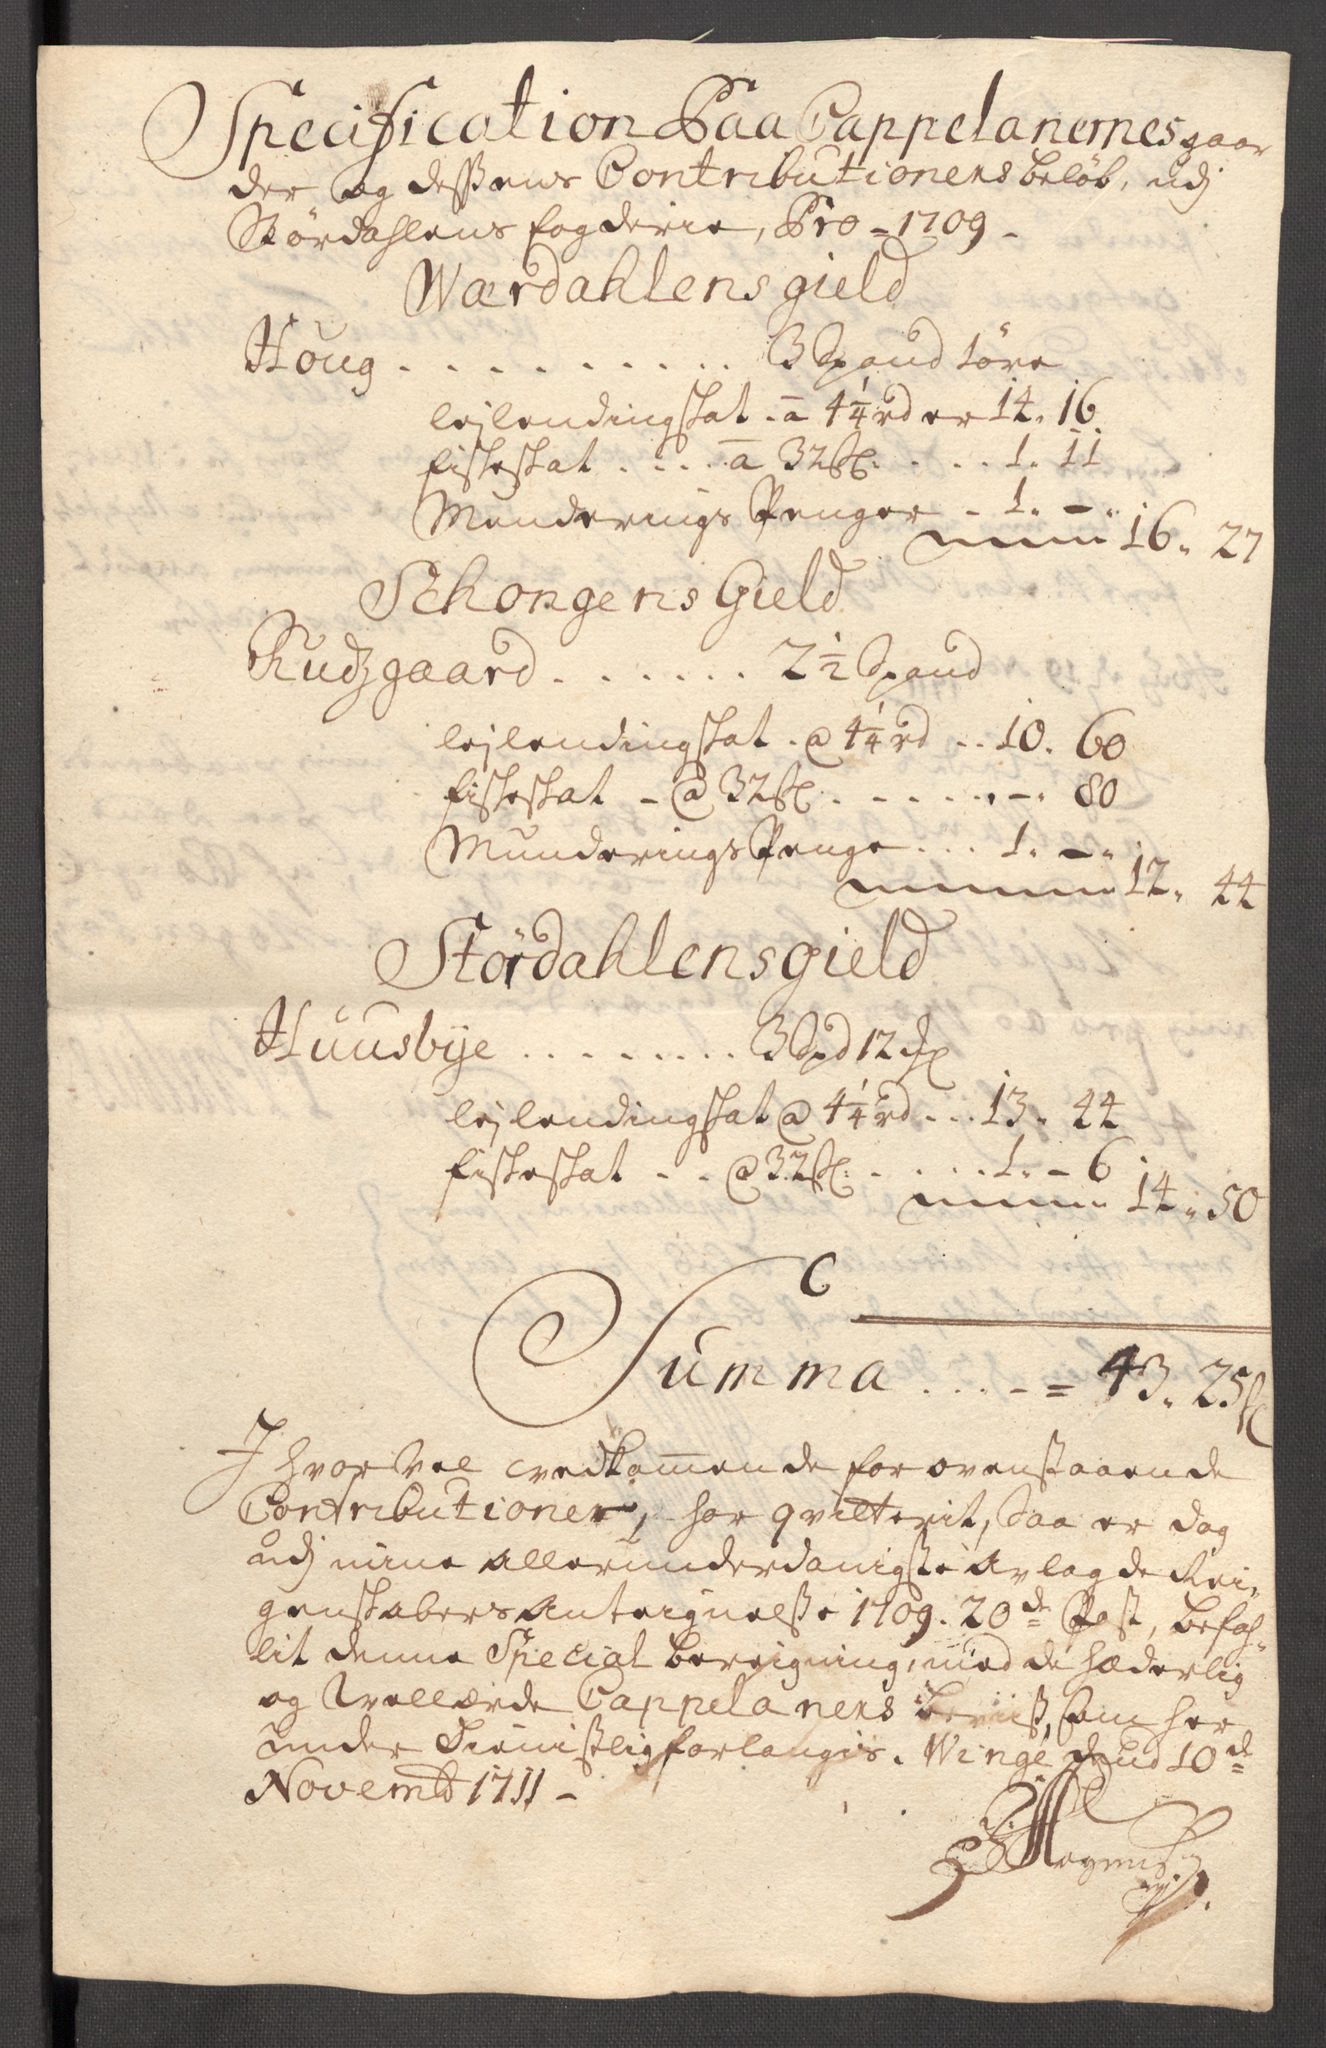 Specification Paa Cappelanernes gaar
der og dessens Contributioners beløb, udj
Størdahlens fogderie, Pro - 1709 -
Wærdahlens gield
Houg . . . . . . . . . . 3 Spand 1 øre
lejlendingskat . a 4 1/4 rd er 14. 16
fiskeskat . . . . a 32 sk. . . . 1. 11
Munderings Penger - 1. -
16. 27
Schongens Gield
Rudzgaard . . . . . . . 2 1/2 Spand
lejlendingskat . @ 4 1/4 rd . . 10. 60
fiskeskat - @ 32 sk. . . . . . - . 80
Munderings Penge . . . 1. -
12. 44
Størdahlens gield
Huusbye . . . . . . . . . 3 Spd 12 
lejlendingskat @ 4 1/4 rd . . . 13. 44
fiskeskat . . @ 32 sk. . . . . 1. - 6
14. 50
Summa . . . - = 43. 25 sk
Ihvorvel vedkommende for ovenstaaende
Contributioner, har qvitterit, saa er dog
udj mine allerunderdanigste aflagde Rei-
genskabers Anteignelsse 1709. 20de Post, befah-
lit denne Special bereigning, med de hæderlig
og Vellærde Cappelaners beviis, som her
under tienistlig forlanges. Winge d 10de
Novembr 1711 -